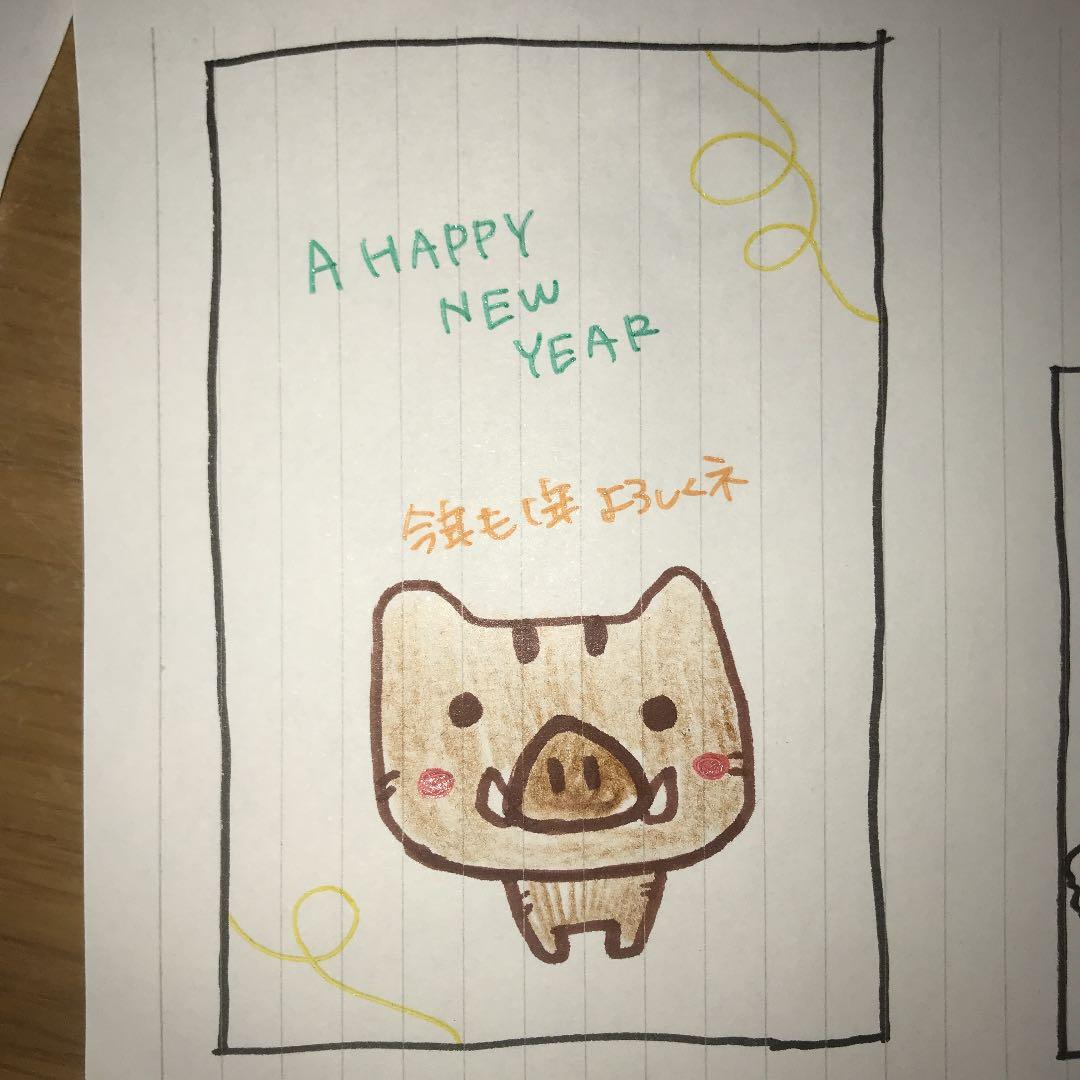 A HAPPY
NEW
YEAR
今年も1年よろしくネ